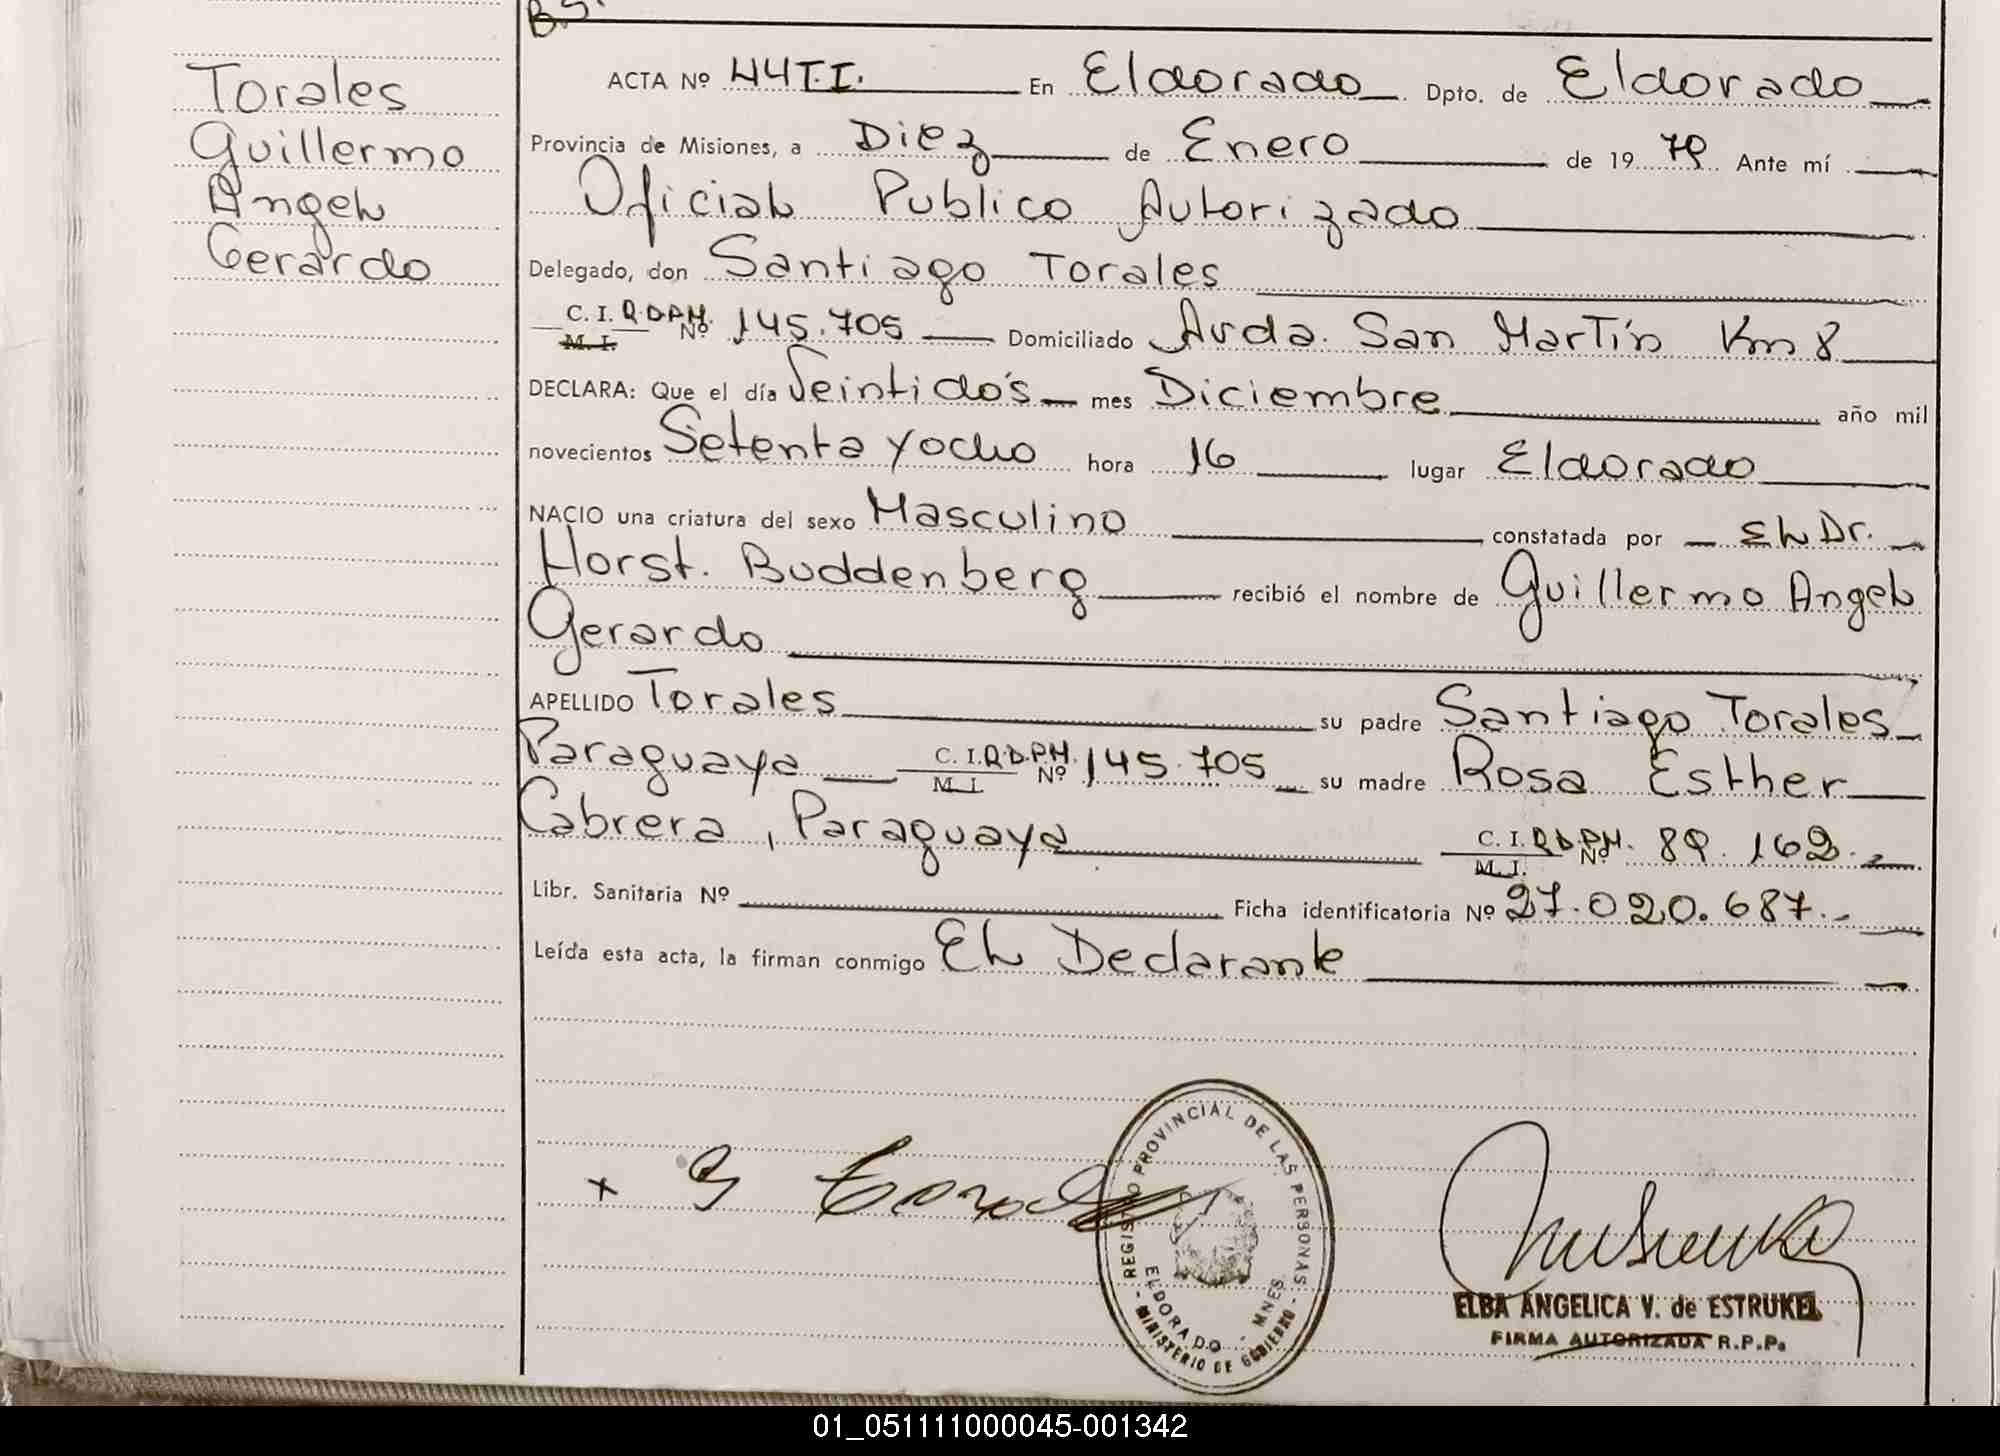 B.S.
Torales
Guillermo
Angel
Gerardo
ACTA Nº 44 T.I. En Eldorado Dpto. de Eldorado
Provincia de Misiones, a Diez de Enero de 19 79 Ante mí
Oficial Publico Autorizado
Delegado, don Santiago Torales
C. I. R.D.P.M. Nº 145.705 Domiciliado Avda. San Martín Km 8
M. I.
DECLARA: Que el día Veintidós mes Diciembre año mil
novecientos Setenta y ocho hora 16 lugar Eldorado
NACIO una criatura del sexo Masculino constatada por El Dr.
Horst. Buddenberg recibió el nombre de Guillermo Angel
Gerardo
APELLIDO Torales su padre Santiago Torales
Paraguaya C. I. R.D.P.M. Nº 145.705 su madre Rosa Esther
M. I.
Cabrera, Paraguaya C. I. R.D.P.M. Nº 89.162.
M. I.
Libr. Sanitaria Nº Ficha identificatoria Nº 27.020.687.
Leída esta acta, la firman conmigo El Declarante
REGISTRO PROVINCIAL DE LAS PERSONAS
ELDORADO - MNES
- MINISTERIO DE GOBIERNO -
ELBA ANGELICA V. de ESTRUKEL
FIRMA AUTORIZADA R.P.P.
01_051111000045-001342